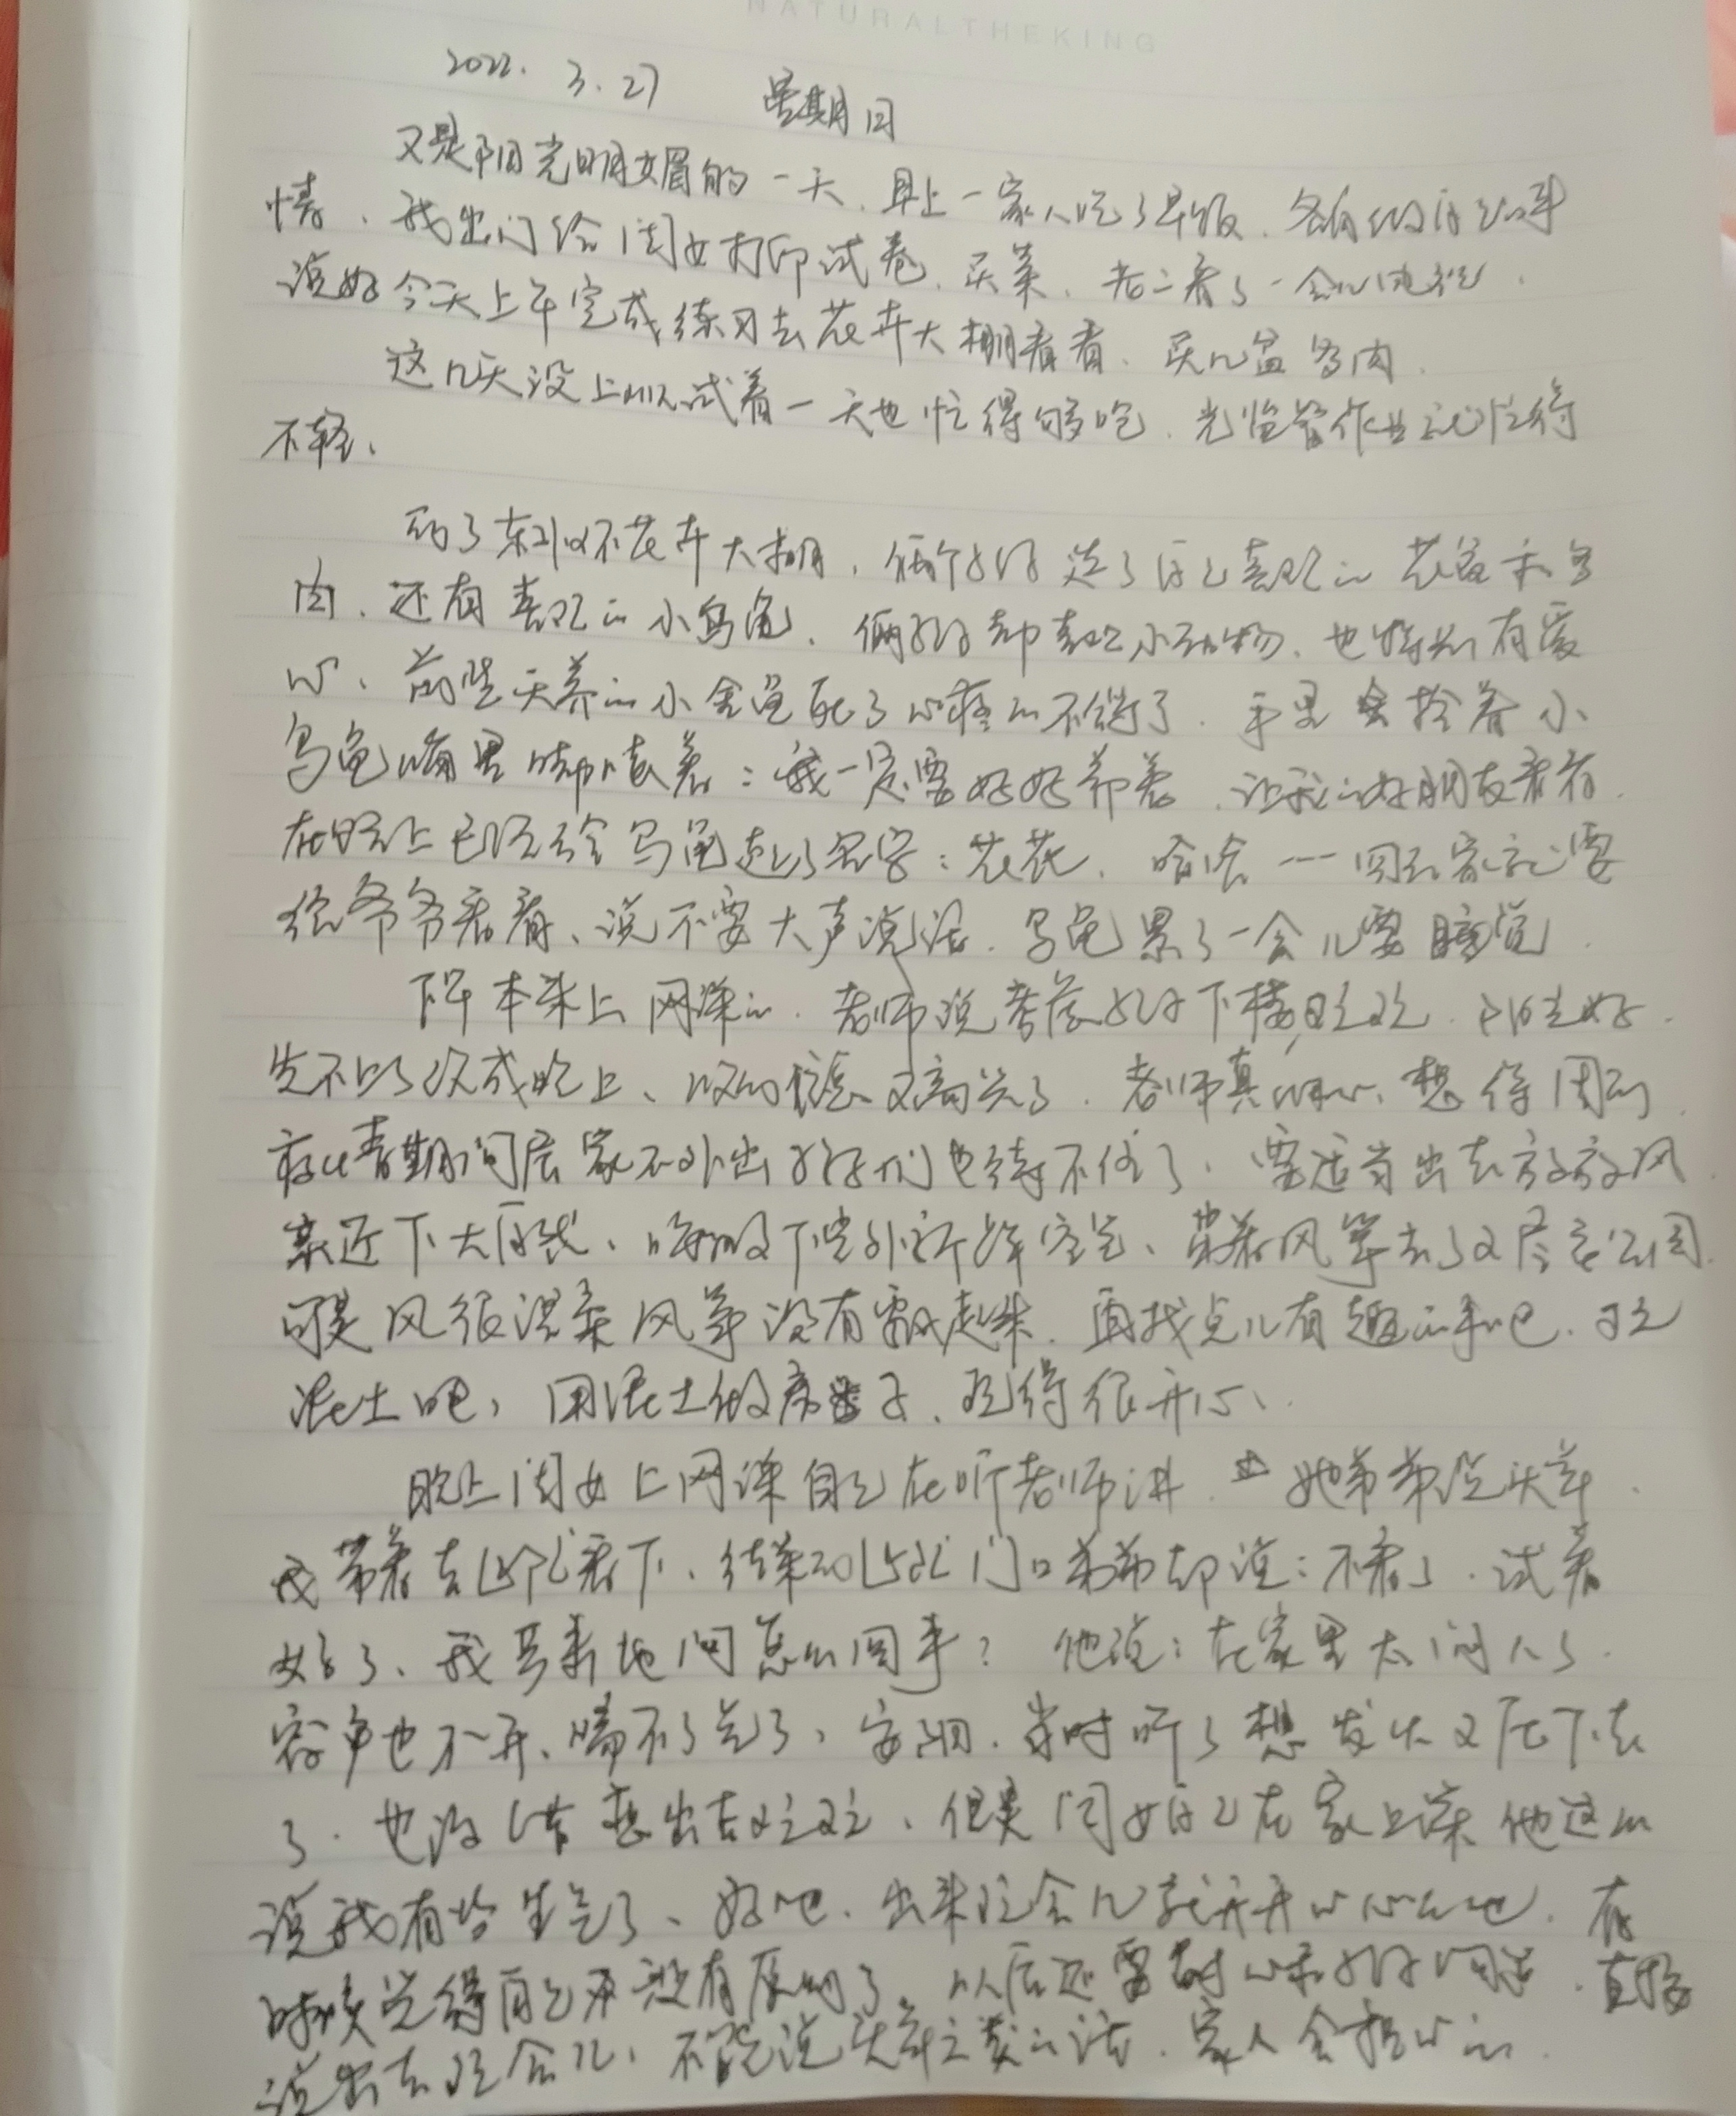 NATURALTHEKING
2022. 3.27 星期日
又是阳光明媚的一天、早上一家人吃了早饭、各自做自己的事
情、我出门给闺女打印试卷、买菜、老二看了一会儿电视、
说好今天上午完成练习去花卉大棚看看、买几盆多肉、
这几天没上班试着一天也忙得够呛、光监管作业就忙得
不轻、
到了花卉大棚、俩孩子选了自己喜欢的花盆和多
肉、还有喜欢的小乌龟、俩孩子都喜欢小动物、也特别有爱
心、前些天养的小金鱼死了心疼的不得了、手里拎着小
乌龟嘴里嘟囔着：我一定要好好养着、让我的好朋友看看、
在路上已经给乌龟起了名字：花花、哈哈……回到家就要
给爷爷看看、说不要大声说话、乌龟累了一会儿要睡觉、
下午本来上网课的、老师说孩子下楼玩玩、
改成晚上、又高兴了、老师真细心、想得周到、
期间居家不外出孩子们也待不住了、要适当出去放放风
亲近下大自然、呼吸下室外新鲜空气、带着风筝去了公园、
可是风很温柔风筝没有飘起来、再找点儿有趣的事吧、玩
泥土吧、用泥土做房子、玩得很开心、
晚上闺女上网课自己在听老师讲、她弟弟说头晕、
我带着去诊所看下、结果到诊所门口弟弟却说：不看了、试着
好了、我好奇地问怎么回事？他说：在家里太闷人了、
窗户也不开、喘不了气了、当时听了想发火又压下去
了、也没错想出去玩玩、但是闺女自己在家上课他这么
说我有些生气了、好吧、出来玩会儿就开开心心的吧、有
时候觉得自己没有原则了、以后还需耐心和孩子沟通、直接
说出去玩会儿、不能说头晕之类的话、家人会担心的、